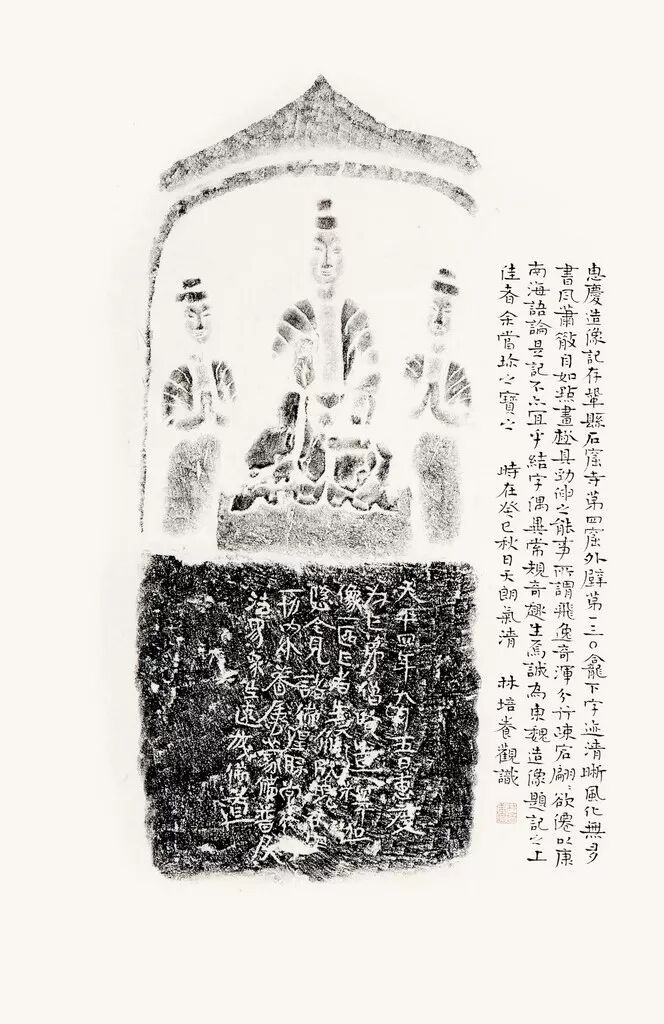 惠慶造像記存鞏縣石窟寺第四窟外壁第一三〇龕下字迹清晰風化無多
書風蕭散自如點畫極具勁伸之能事所謂飛逸奇渾分行疎宕翩〻欲僊以康
南海語論是記不亦宜乎結字偶異常規奇趣生焉誠為東魏造像題記之上
佳者余當珍之寶之 時在癸巳秋日天朗氣清 林培養觀識
平四年九月十五日惠慶
為亡弟僧造釋加
像一區亡者
見諸
內外眷屬普及
法界衆生道